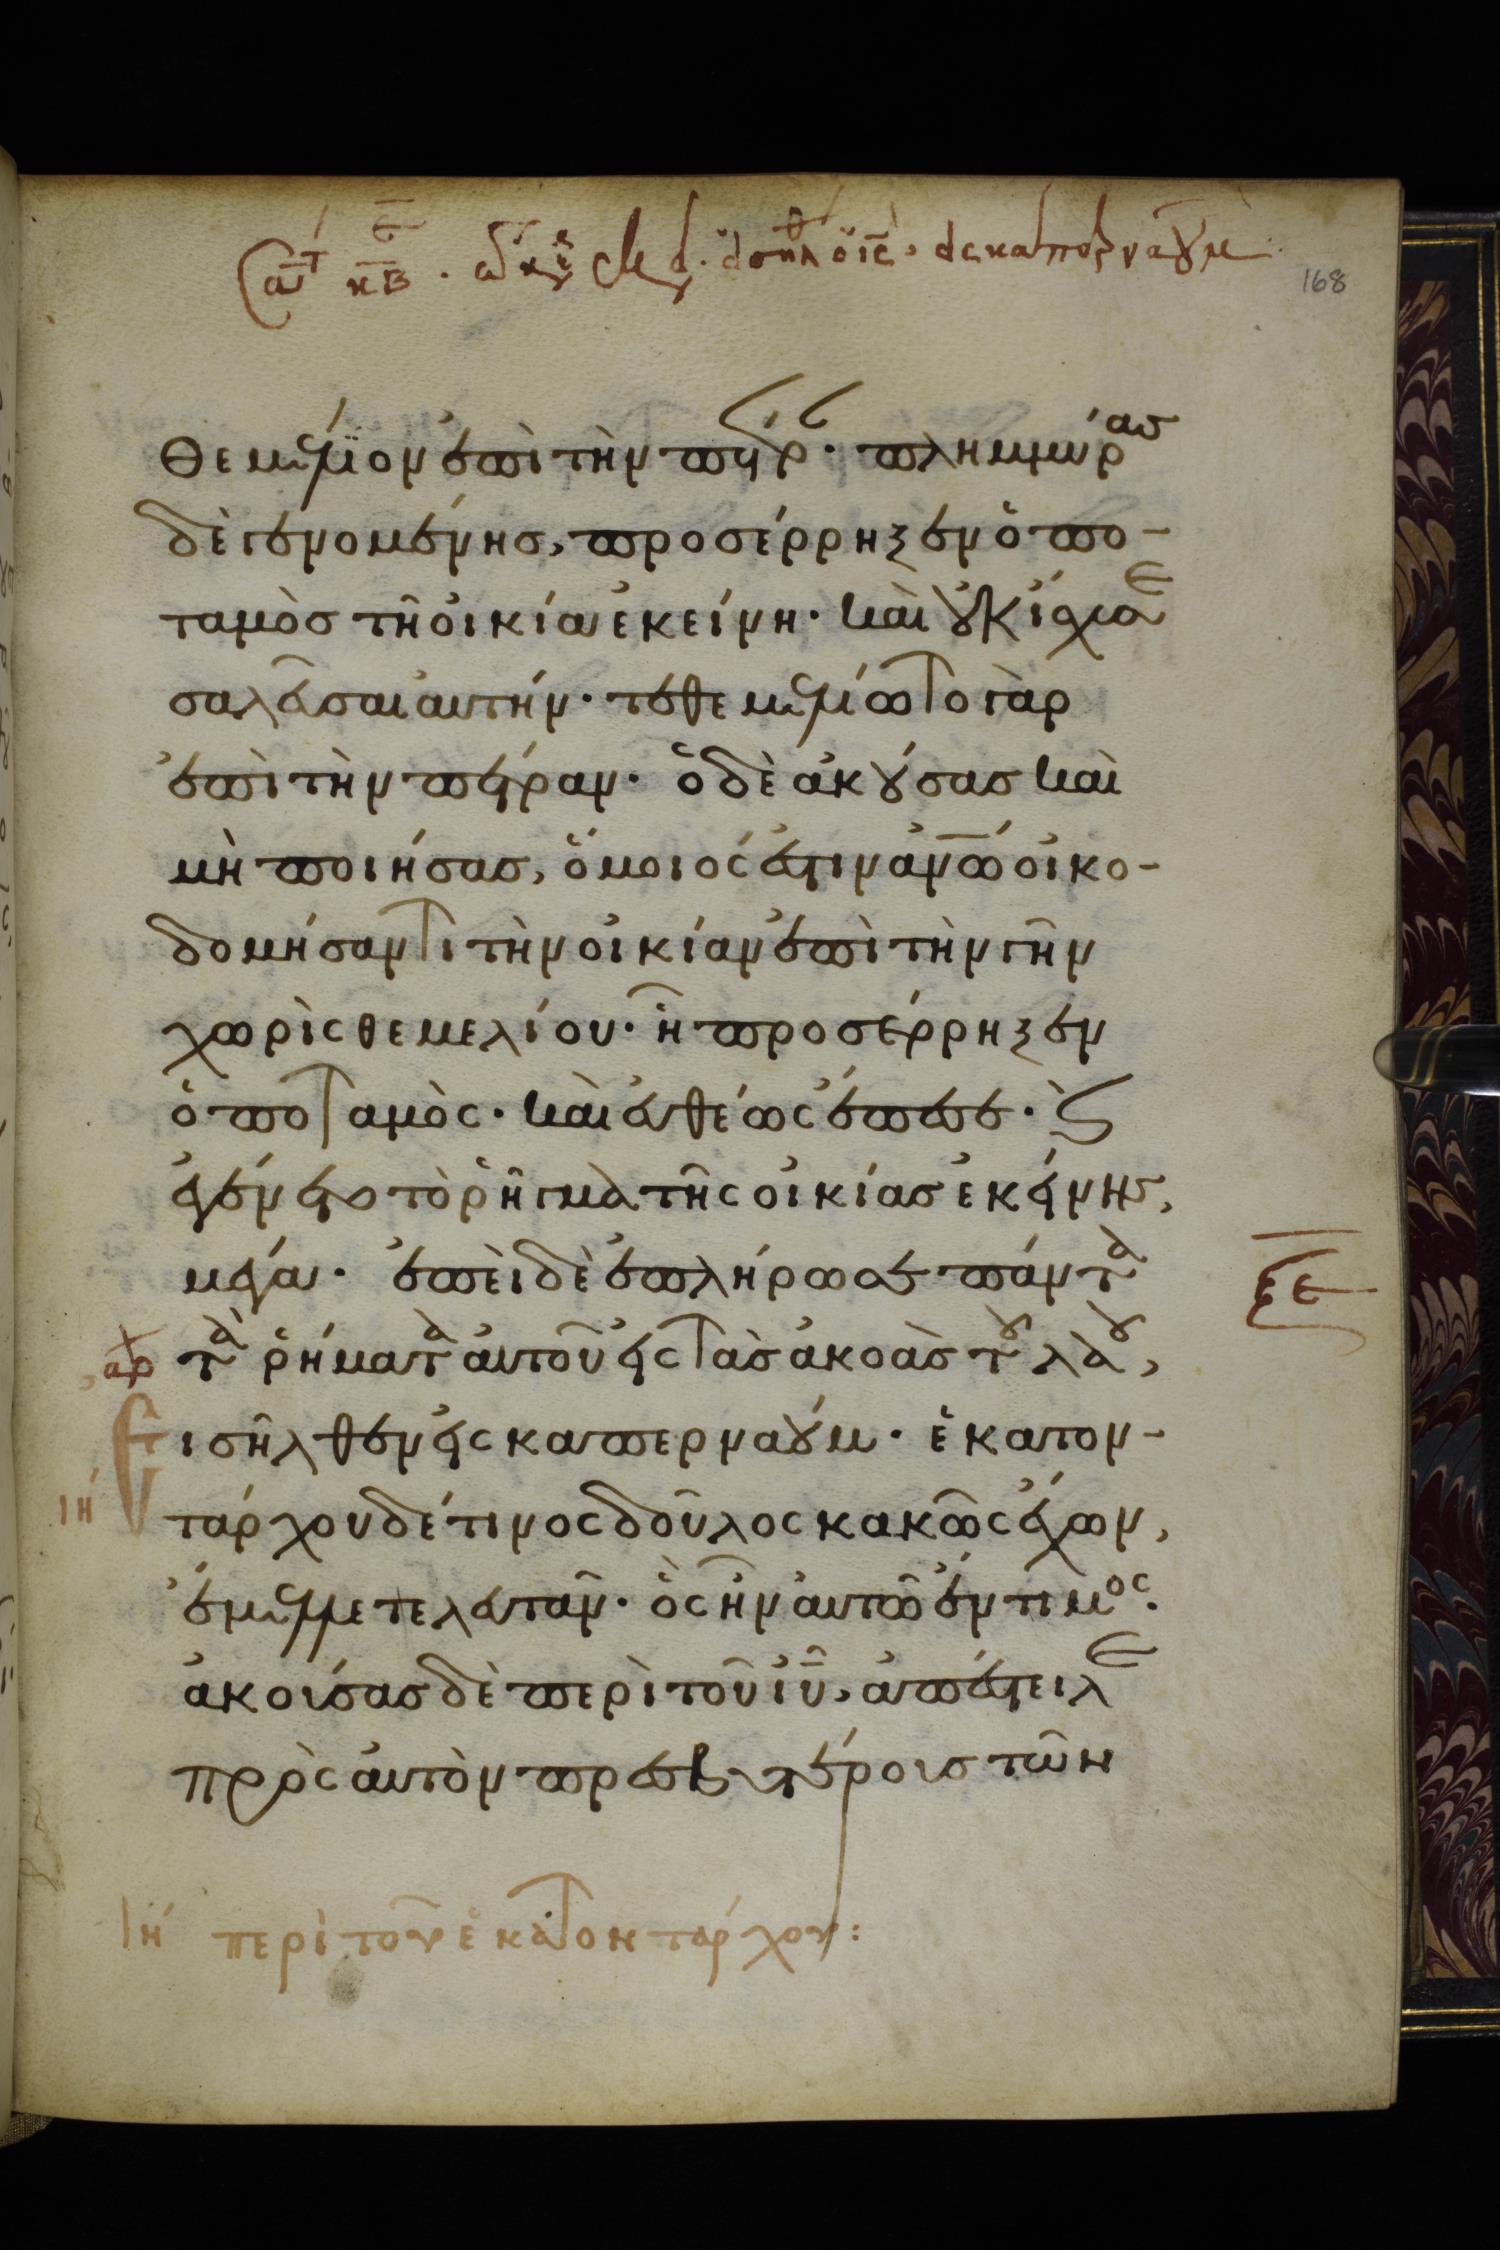 168
θεμέλιον ἐπὶ τὴν πέτρ· πλημμύρας
δὲ γενομένης, προσέρρηξεν ὁ πο-
ταμὸς τῆ οἰκία ἐκείνη· καὶ οὐκ ἴσχυσε
σαλεῦσαι αὐτήν· τεθεμελίωτο γὰρ
ἐπὶ τὴν πέτραν· ὁ δὲ ἀκούσας καὶ
μὴ ποιήσας, ὅμοιός ἐστιν ἀνω οἰκο-
δομήσαντι τὴν οἰκίαν ἐπὶ τὴν γῆν
χωρὶς θεμελίου· ἧ προσέρρηξεν
ὁ ποταμὸς· καὶ εὐθέως ἔπεσε· καὶ
ἐγένετο τὸ ῥῆγμα τῆς οἰκίας ἐκείνης,
μέγα· ἐπεὶ δὲ ἐπλήρωσε πάντα
τὰ ῥήματα αὐτοῦ εἰς τὰς ἀκοὰς τοῦ λαοῦ,
ξε
αρχ
Εἰσῆλθεν εἰς καπερναούμ· ἑκατον-
ιη
τάρχου δέ τινος δοῦλος κακῶς ἔχων,
ἔμελλε τελευτᾶν· ὃς ἦν αὐτῶ ἔντιμος·
ἀκούσας δὲ περὶ τοῦ ιυ, ἀπέστειλε
πρὸς αὐτὸν πρεσβυτέρους τῶν
ιη περὶ τοῦ ἑκατοντάρχου: